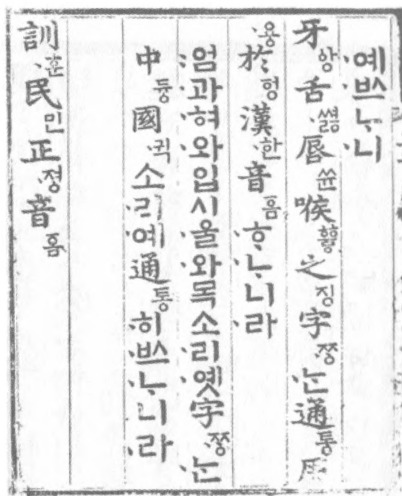 예ᄡᅳᄂᆞ니
牙ᅌᅡᆼ舌쎠ᇙ唇쓘喉ᅘᅮᇢ之징字ᄍᆞᆼᄂᆞᆫ通통用
용於ᅙᅥᆼ漢한音ᅙᅳᆷᄒᆞᄂᆞ니라
엄과혀와입시울와목소리옛字ᄍᆞᆼᄂᆞᆫ
中듕國귁소리예通통히ᄡᅳᄂᆞ니라
訓훈民민正졍音ᅙᅳᆷ